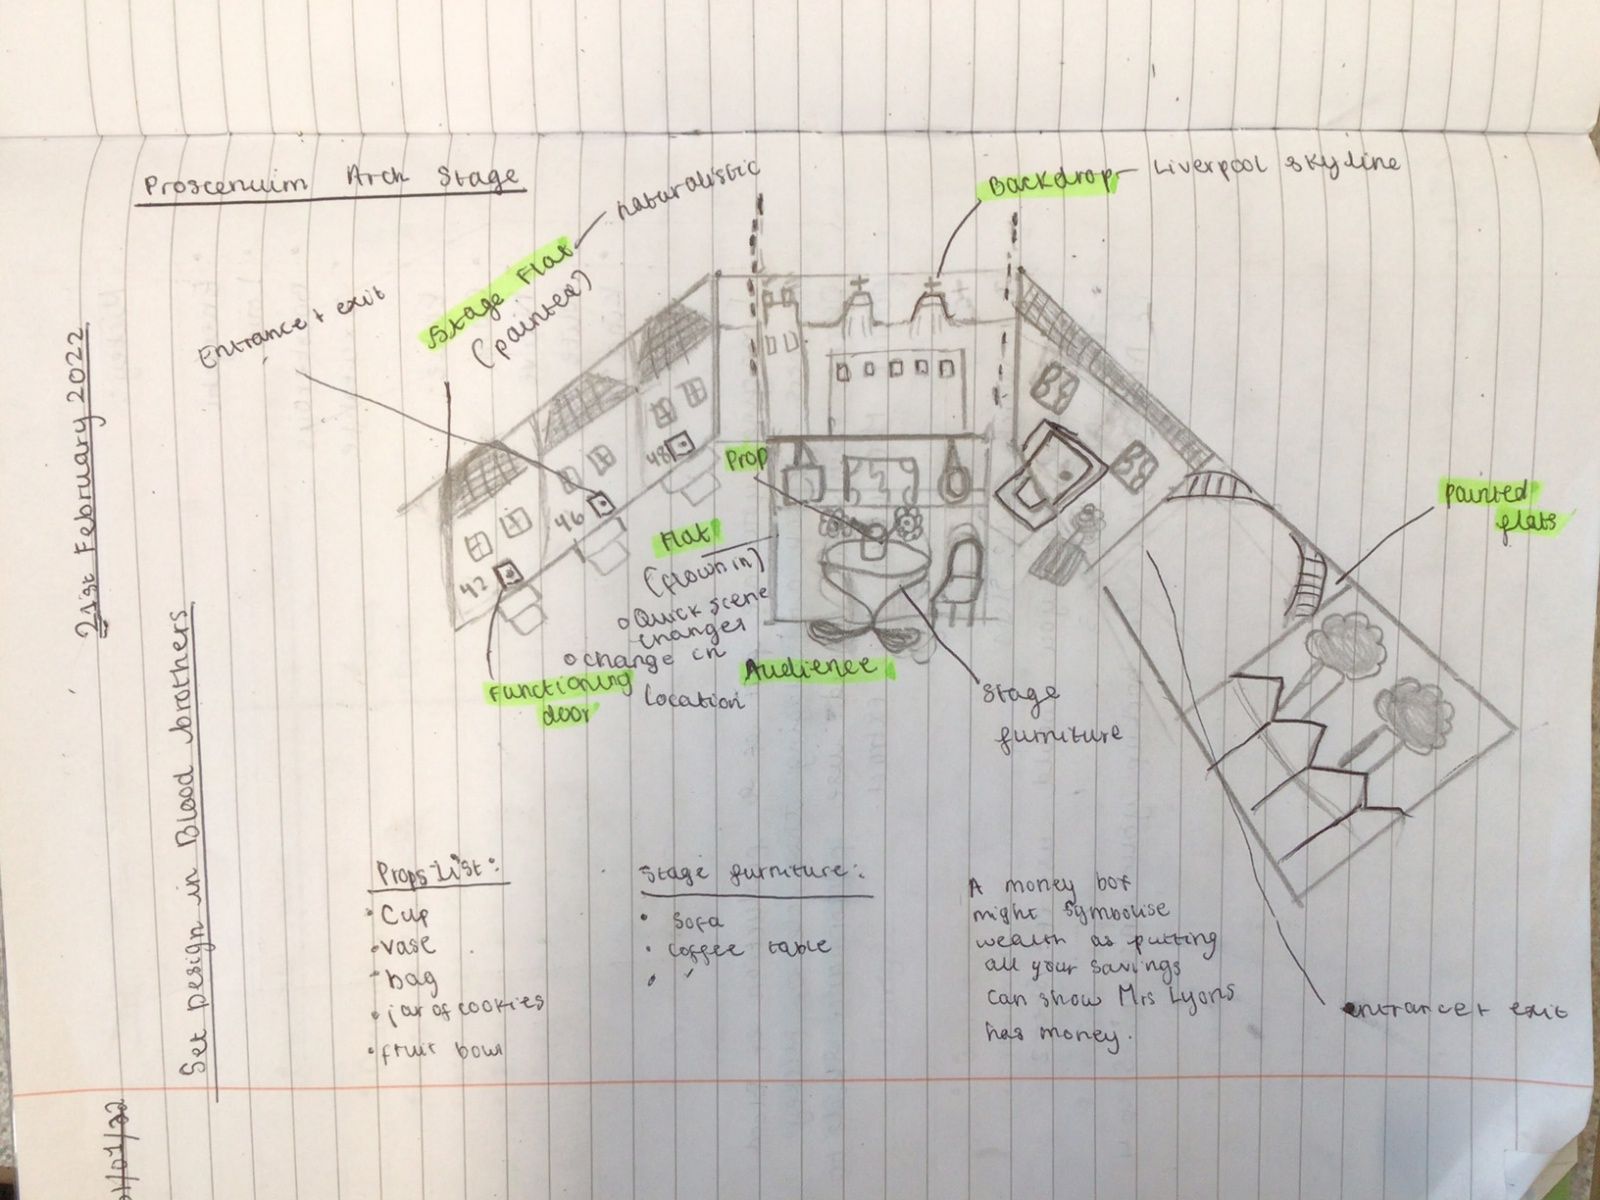 21st February 2022
Set Design in Blood brothers
Proscenuim Arch Stage
naturalistic
Backdrop - Liverpool skyline
Stage Flat
(painted)
Entrance + exit
48
46
42
Prop
painted
flats
Flat
(flown in)
o Quick scene
changes
o change in
location
Functioning
door
Audience
Stage
furniture
Props List:
• Cup
• vase
• bag
• jar of cookies
• fruit bowl
Stage furniture:
• Sofa
• Coffee table
A money box
might symbolise
wealth as putting
all your savings
can show Mrs Lyons
has money.
entrance + exit